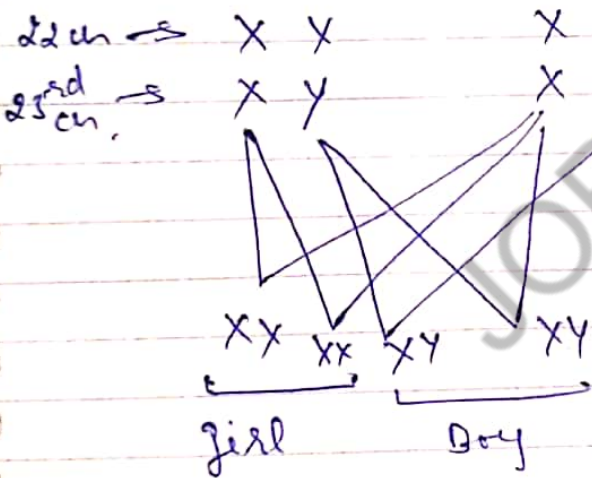 22 ch → X Y X
23rd ch. → X Y X
XX XX XY XY
Girl Boy
JOE